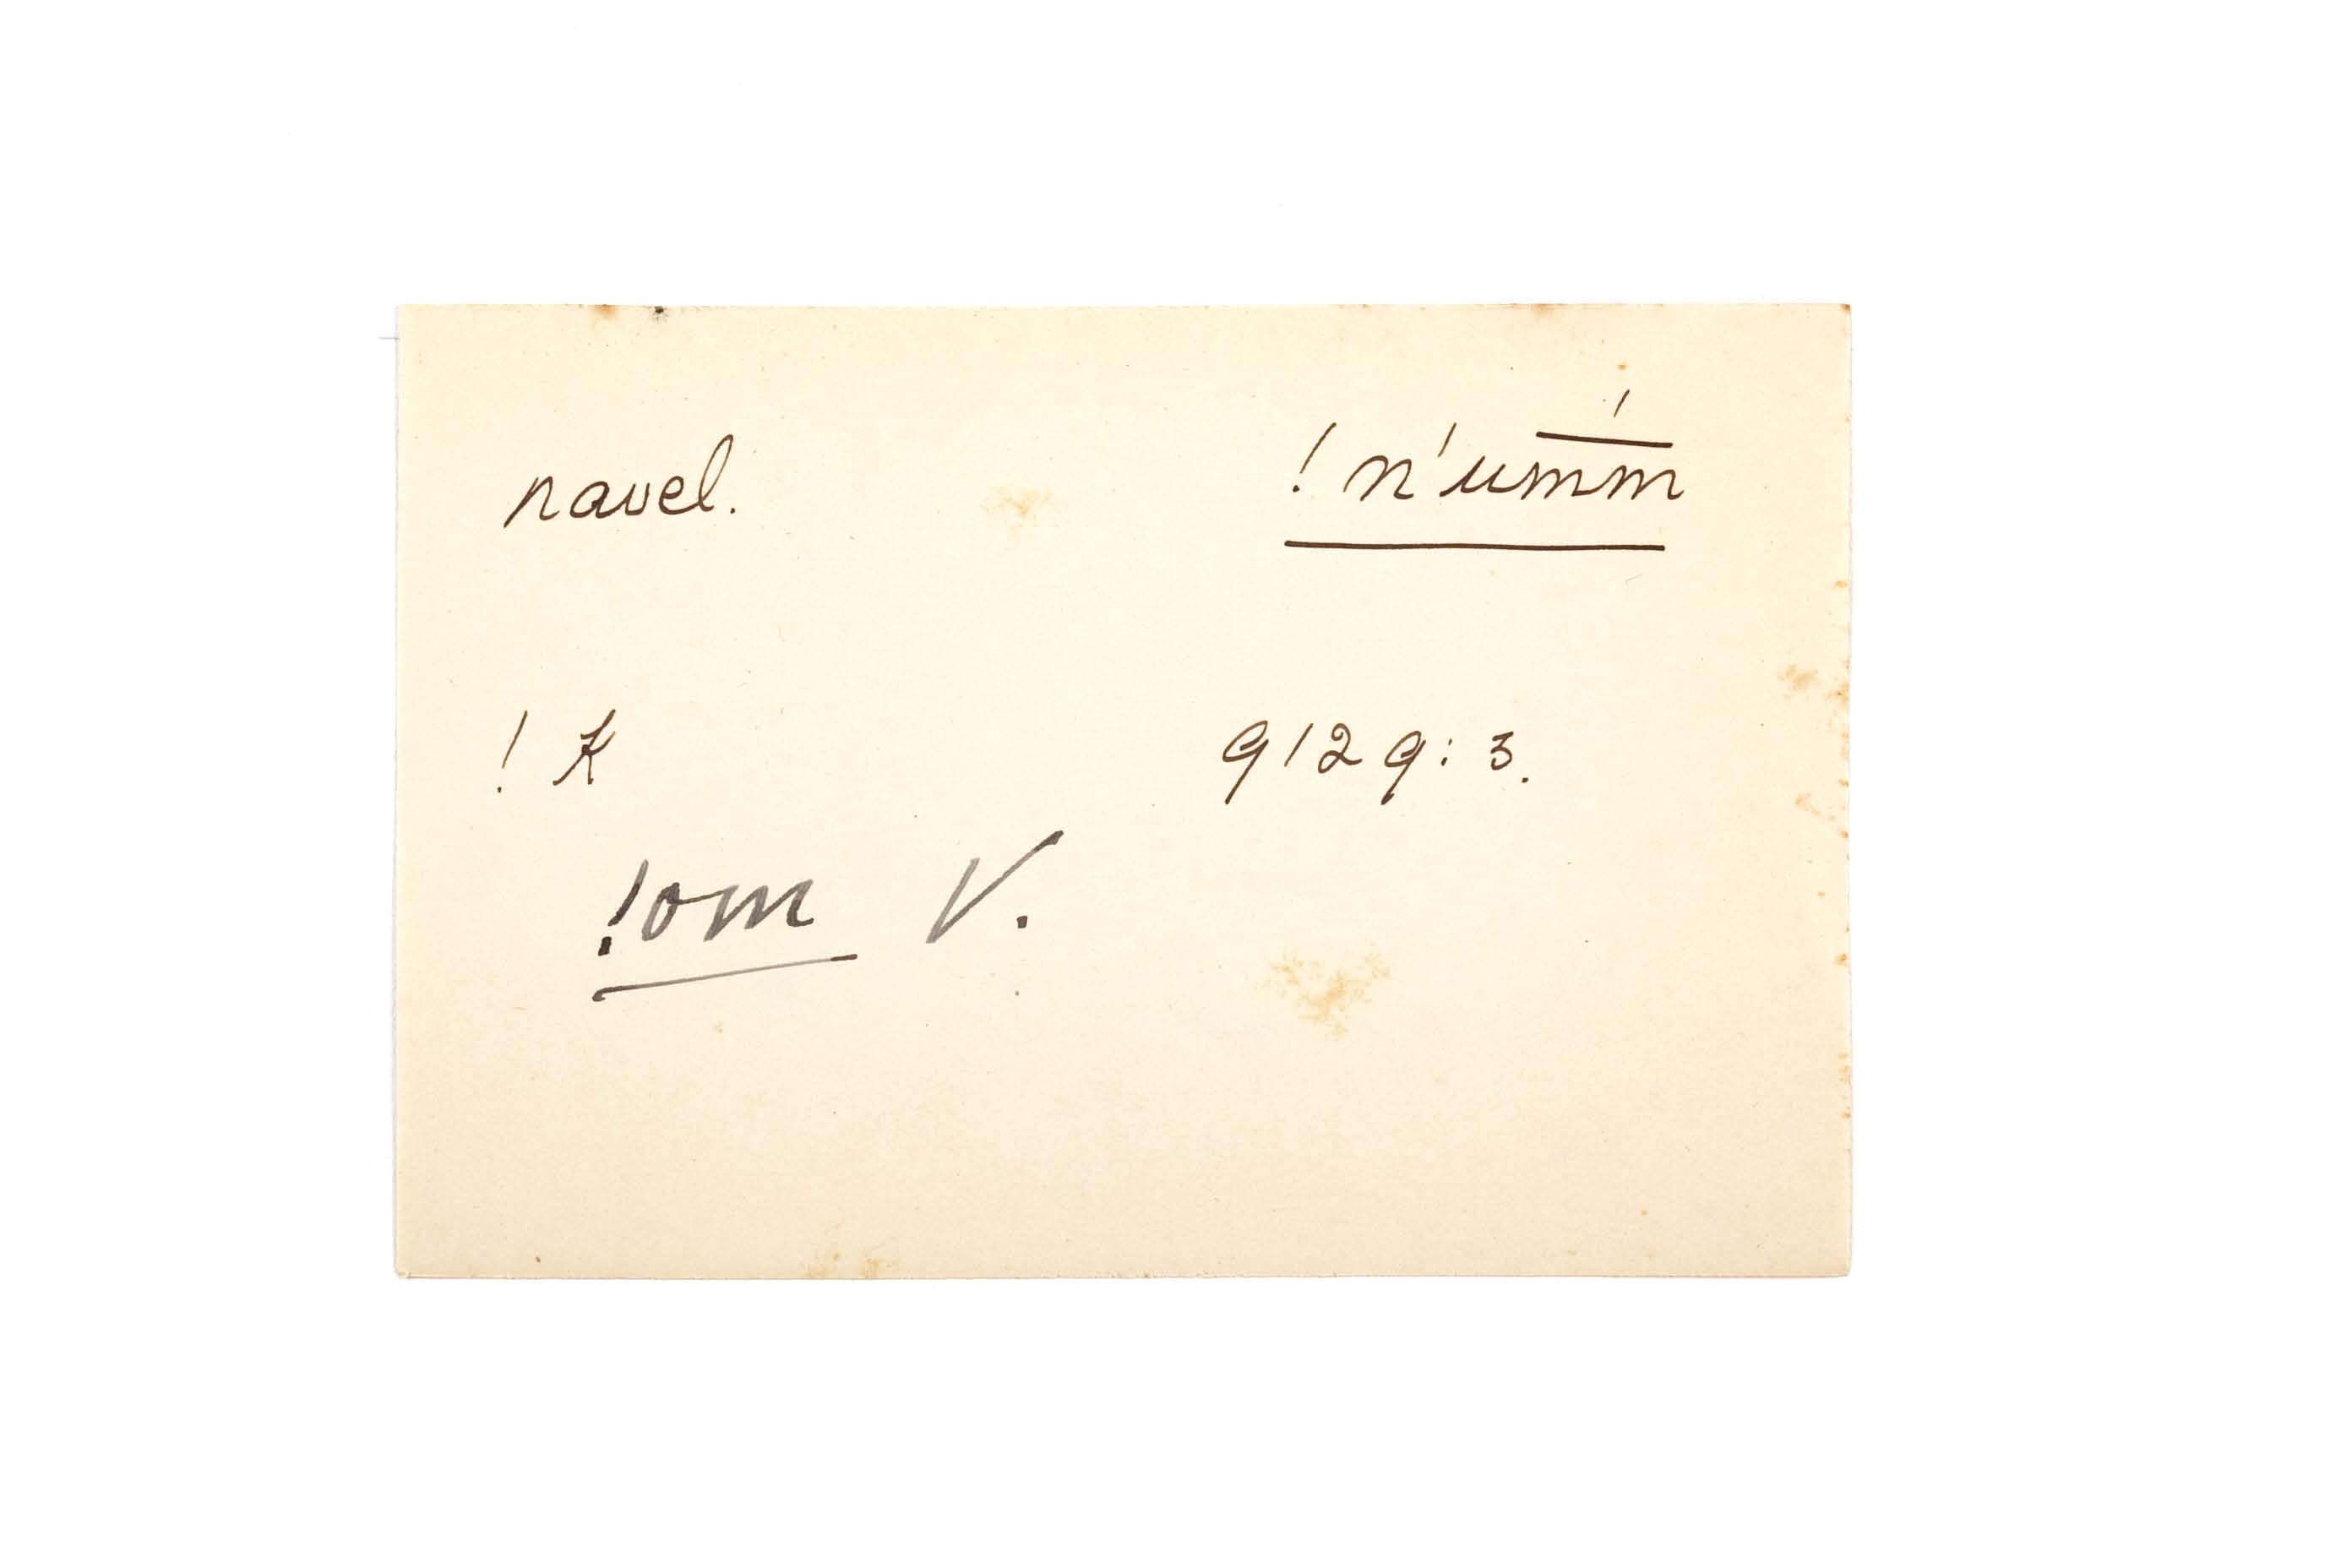 navel. !n'umḿ
! K 9129: 3.
!om V.